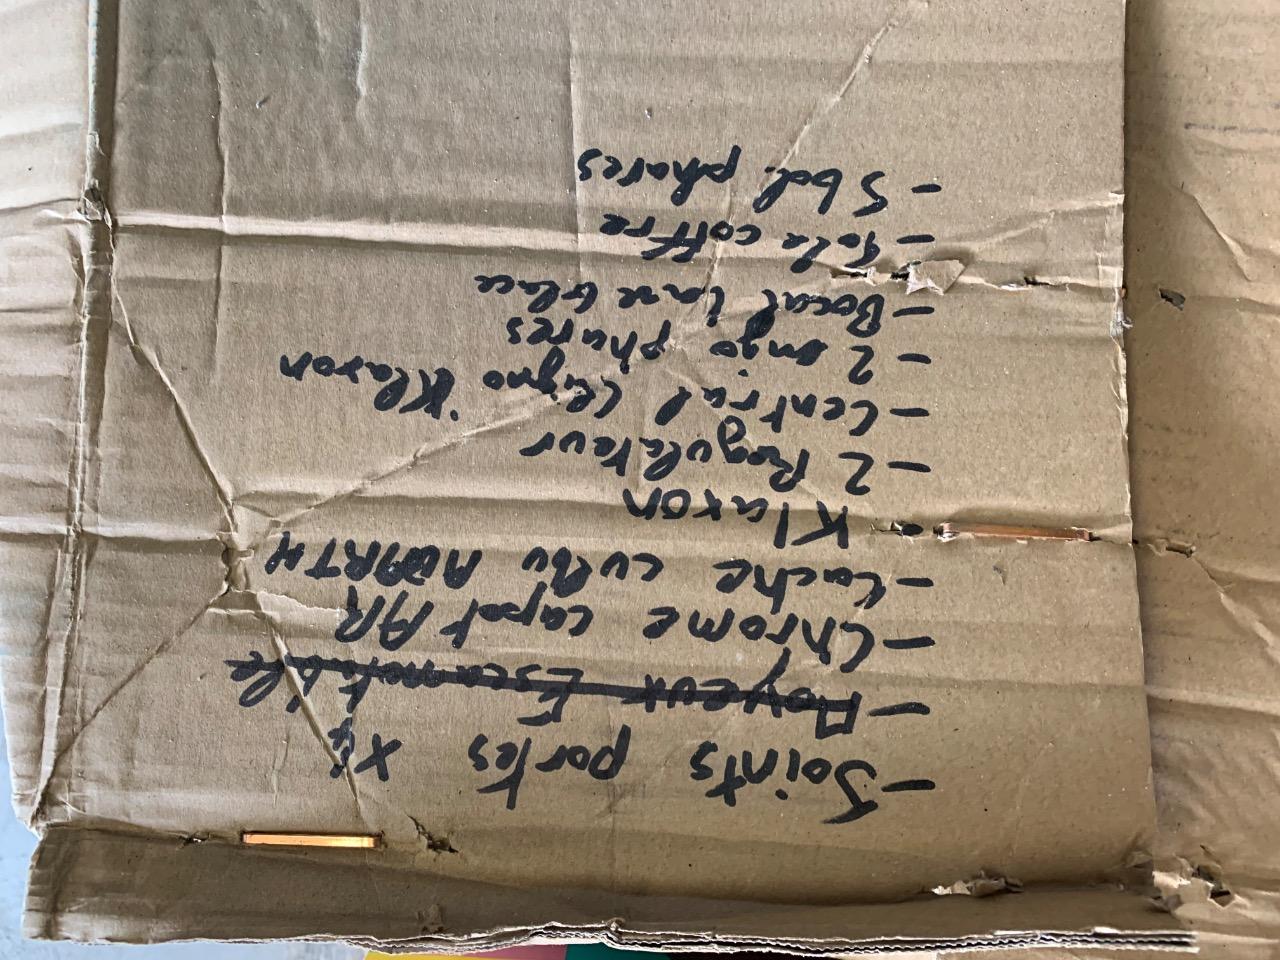 - Joints portes x4
- Moyeux Escamotable
- Chrome capot AR
- Cache culbu ABARTH
Klaxon
- 2 Regulateur
- Central Cligno Klaxon
- 2 phares
- Bocal lave Glace
- Tole coffre
- 5 phares